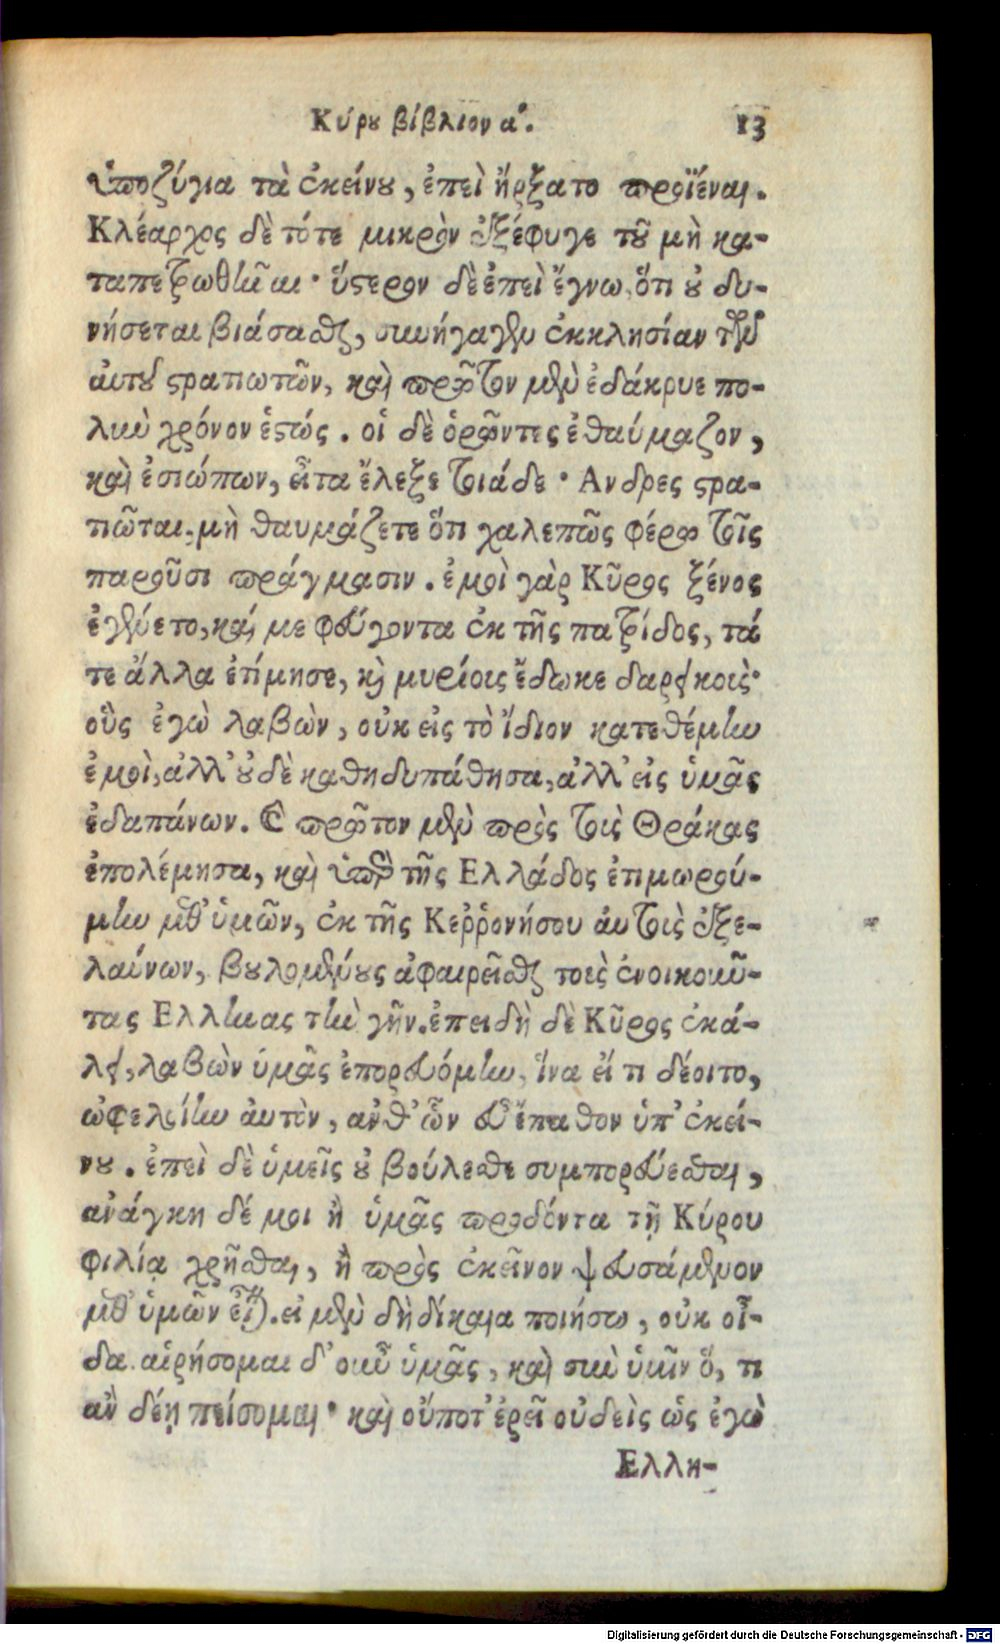 Κύρου βίβλιον α΄. 13
ὑποζύγια τὰ ἐκείνου, ἐπεὶ ἤρξατο προϊέναι.
Κλέαρχος δὲ τότε μικρὸν ἐξέφυγε τοῦ μὴ κα-
ταπετρωθῆναι· ὕστερον δὲ ἐπεὶ ἔγνω, ὅτι οὐ δυ-
νήσεται βιάσασθαι, συνήγαγεν ἐκκλησίαν τῶν
αὐτοῦ στρατιωτῶν, καὶ πρῶτον μὲν ἐδάκρυε πο-
λὺν χρόνον ἑστώς. οἱ δὲ ὁρῶντες ἐθαύμαζον,
καὶ ἐσιώπων, εἶτα ἔλεξε τοιάδε· Ανδρες στρα-
τιῶται, μὴ θαυμάζετε ὅτι χαλεπῶς φέρω τοῖς
παροῦσι πράγμασιν. ἐμοὶ γὰρ Κῦρος ξένος
ἐγένετο, καί με φεύγοντα ἐκ τῆς πατρίδος, τά
τε ἄλλα ἐτίμησε, καὶ μυρίοις ἔδωκε δαρεικοὶς·
οὓς ἐγὼ λαβὼν, οὐκ εἰς τὸ ἴδιον κατεθέμην
ἐμοὶ, ἀλλ' οὐδὲ καθηδυπάθησα, ἀλλ' εἰς ὑμᾶς
ἐδαπάνων. Καὶ πρῶτον μὲν πρὸς τοὺς Θρᾴκας
ἐπολέμησα, καὶ ὑπὲρ τῆς Ελλάδος ἐτιμωρού-
μην μεθ' ὑμῶν, ἐκ τῆς Κεῤῥονήσου αὐτοὺς ἐξε-
λαύνων, βουλομένους ἀφαιρεῖσθαι τοὺς ἐνοικοῦν-
τας Ελληνας τὴν γῆν. ἐπειδὴ δὲ Κῦρος ἐκά-
λει, λαβὼν ὑμᾶς ἐπορευόμην, ἵνα εἴ τι δέοιτο,
ὠφελοίην αὐτὸν, ἀνθ' ὧν εὖ ἔπαθον ὑπ' ἐκεί-
νου. ἐπεὶ δὲ ὑμεῖς οὐ βούλεσθε συμπορεύεσθαι,
ἀνάγκη δέ μοι ἢ ὑμᾶς προδόντα τῇ Κύρου
φιλίᾳ χρῆσθαι, ἢ πρὸς ἐκεῖνον ψευσάμενον
μεθ' ὑμῶν εἶναι. εἰ μὲν δὴ δίκαια ποιήσω, οὐκ οἶ-
δα. αἱρήσομαι δ' οὖν ὑμᾶς, καὶ σὺν ὑμῖν ὅ, τι
ἂν δέῃ πείσομαι· καὶ οὔποτ' ἐρεῖ οὐδεὶς ὡς ἐγὼ
Ελλη-
Digitalisierung gefördert durch die Deutsche Forschungsgemeinschaft - DFG